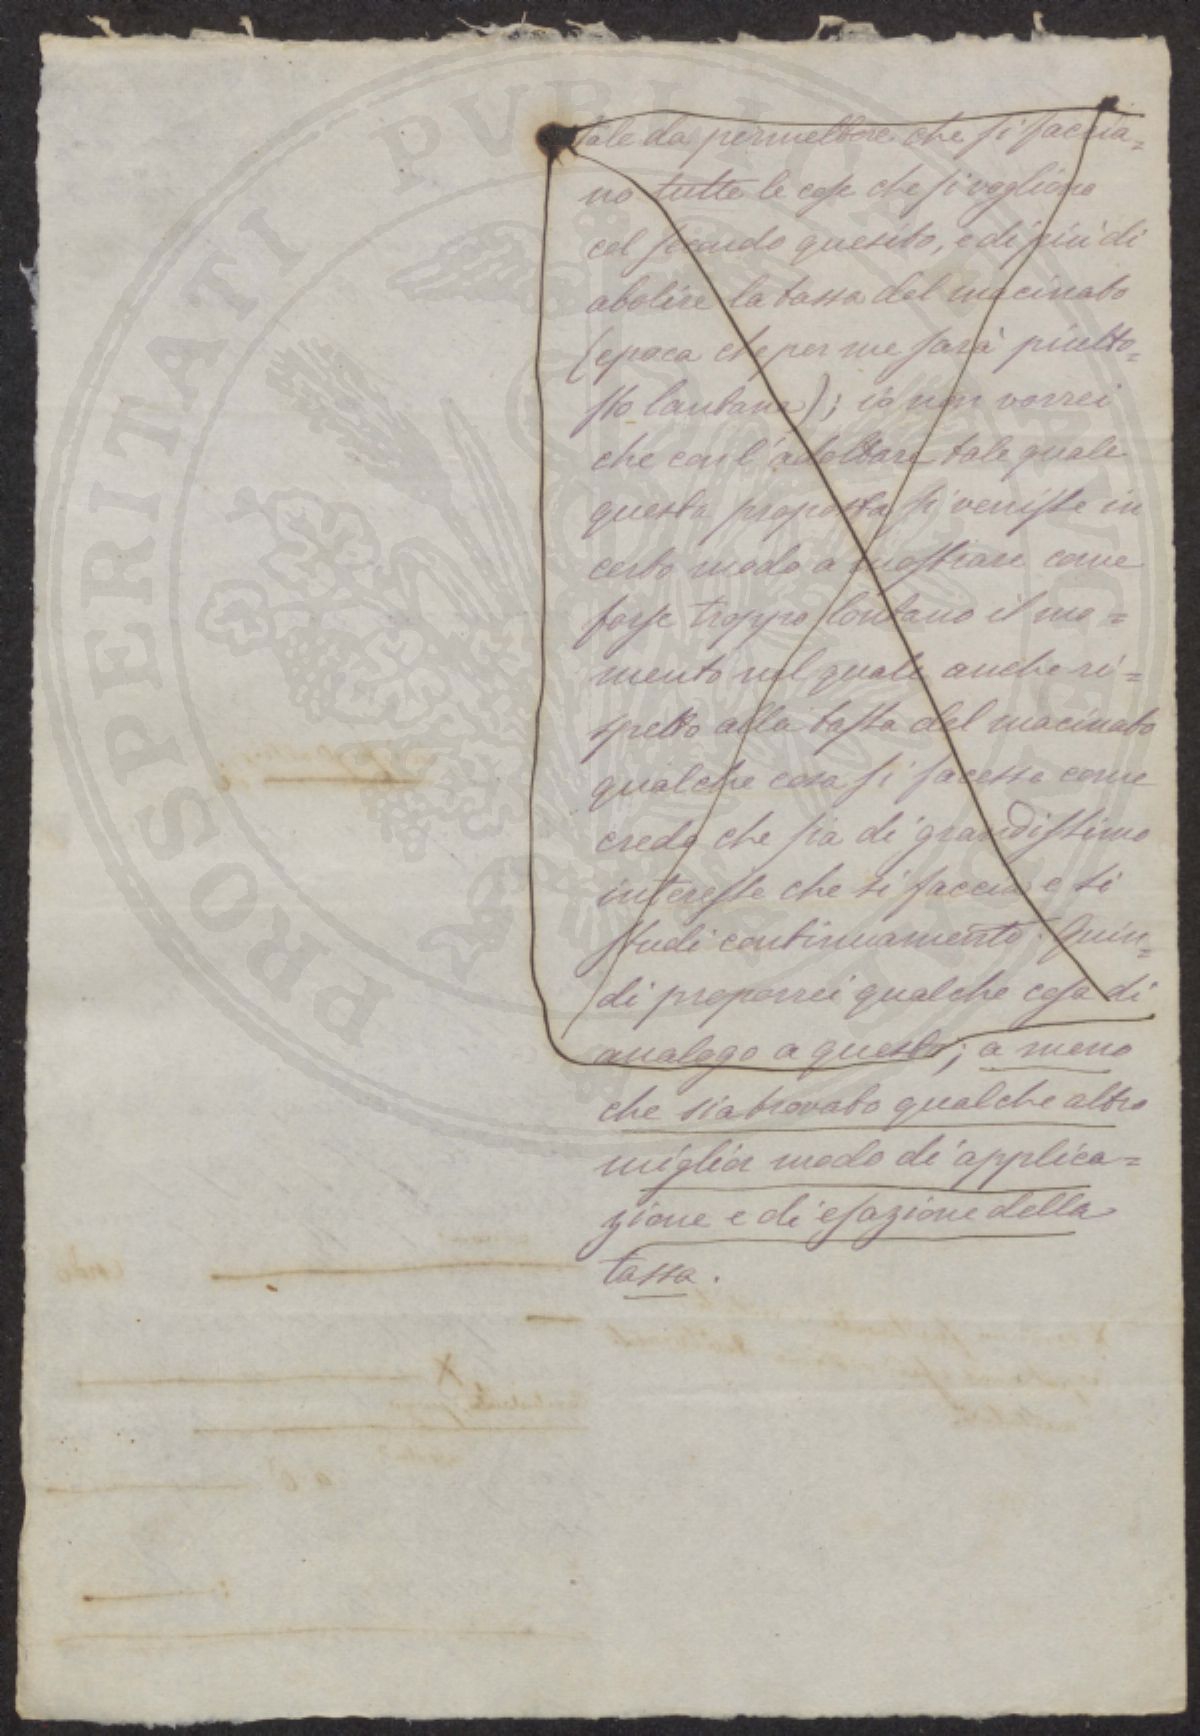 tale da permettere che si faccia=
no tutte le cose che si vogliono
col secondo quesito, e di più di
abolire la tassa del macinato
(epoca che per me sarà piutto=
sto lontana); io non vorrei
che con l'adottare tale quale
questa proposta si venisse in
certo modo a mostrare come
forse troppo lontano il mo=
mento nel quale anche ri=
spetto alla tassa del macinato
qualche cosa si facesse come
credo che sia di grandissimo
interesse che si faccia e si
studi continuamente. Quin=
di proporrei qualche cosa di
analogo a questo; a meno
che sia trovato qualche altro
miglior modo di applica=
zione e di esazione della
tassa.
PROSPERITATI PVBLICAE